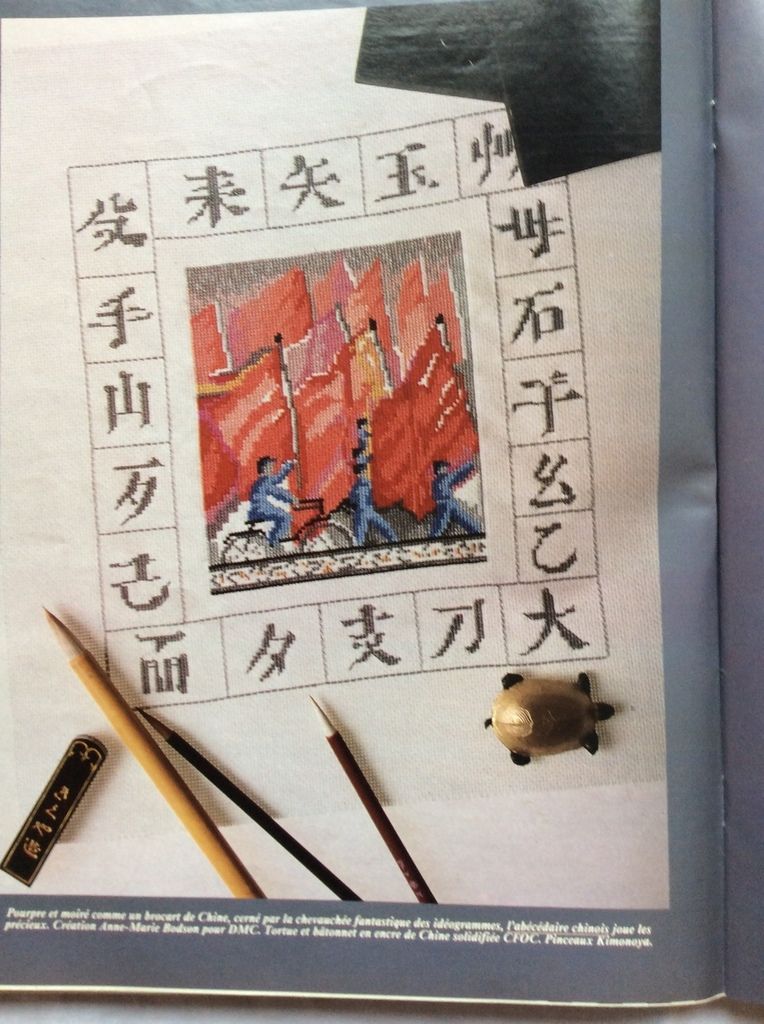 耒 矢 玉 艸
殳 毋
手 石
山 干
歹 幺
己 乙
而 夕 支 刀 大
Pourpre et moiré comme un brocart de Chine, cerné par la chevauchée fantastique des idéogrammes, l'abécédaire chinois joue les
précieux. Création Anne-Marie Bodson pour DMC. Tortue et bâtonnet en encre de Chine solidifiée CFOC. Pinceaux Kimonoya.